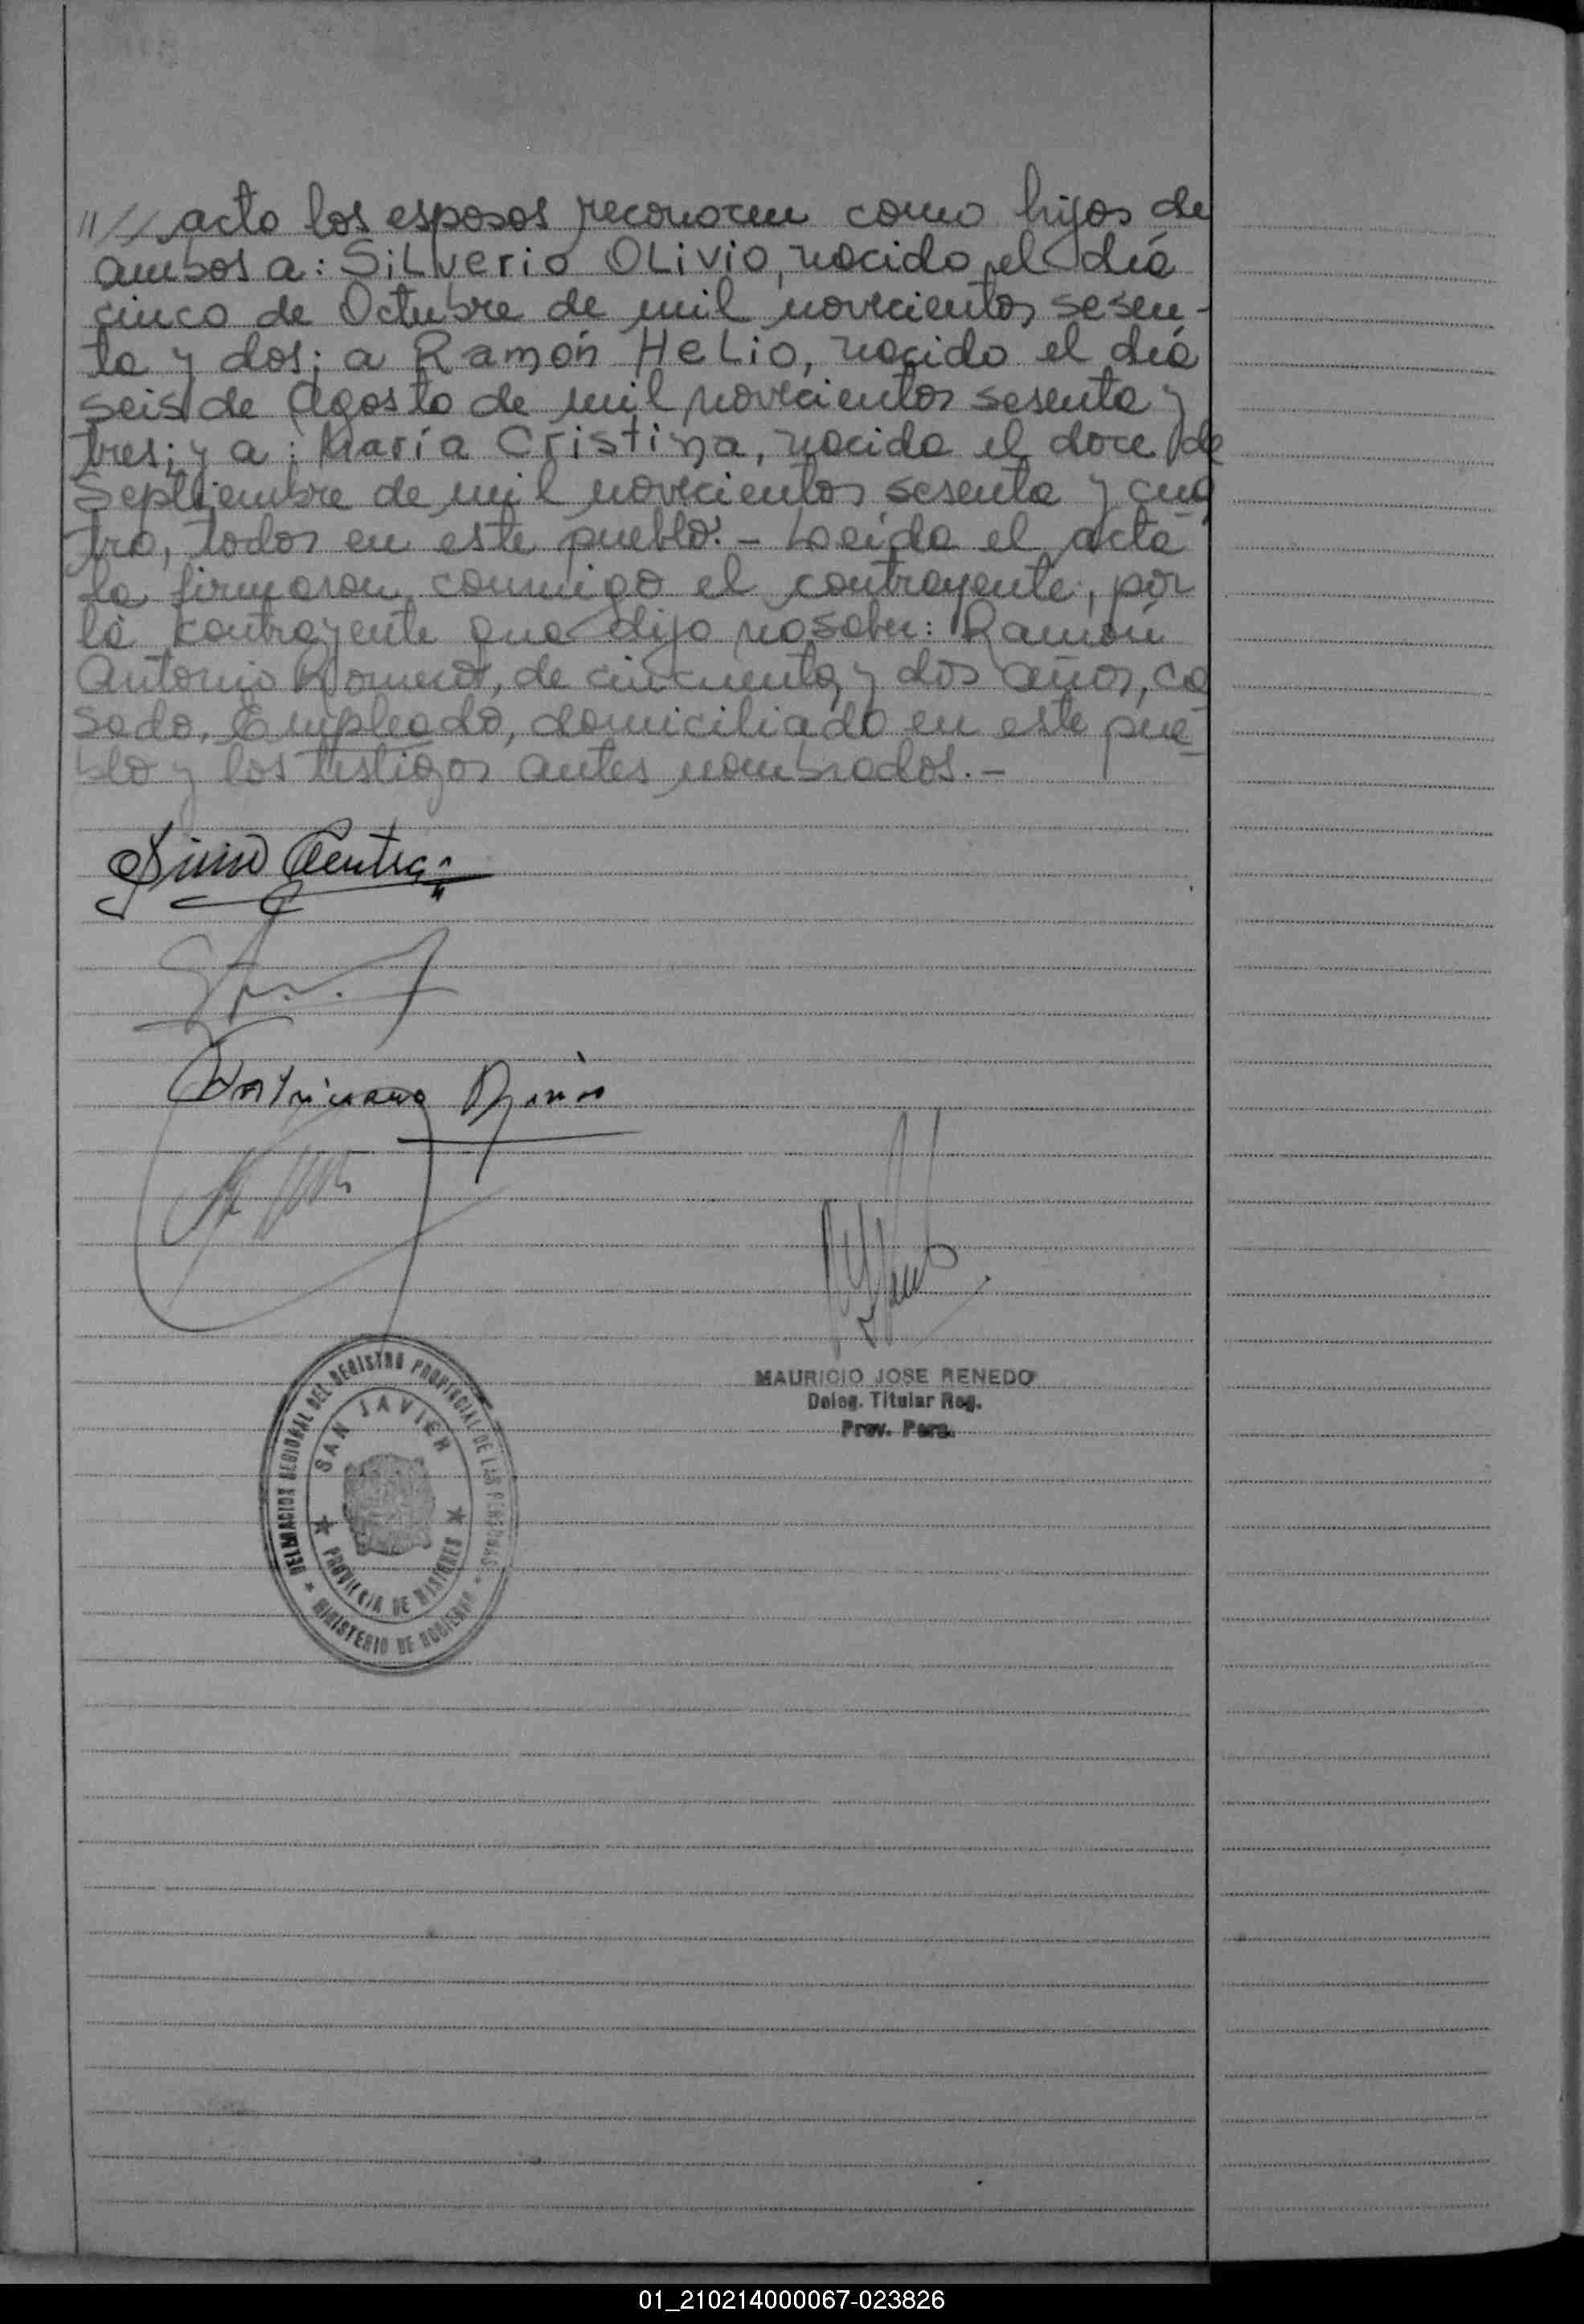 11// acto los esposos reconocen como hijos de
ambos a: SiLverio OLivio, nacido el día
cinco de Octubre de mil novecientos sesen-
ta y dos; a Ramón HeLio, nacido el día
seis de Agosto de mil novecientos sesenta y
tres; y a: María Cristina, nacida el doce de
Septiembre de mil novecientos sesenta y cua
tro, todos en este pueblo.- Leída el acta
la firmaron conmigo el contrayente, por
la contrayente que dijo no saber: Ramón
Antonio Romero, de cincuenta y dos años, ca
sado, Empleado, domiciliado en este pue
blo y los testigos antes nombrados.-
MAURICIO JOSE RENEDO
Deleg. Titular Reg.
Prov. Pers.
DELEGACION REGIONAL DEL REGISTRO PROVINCIAL DE LAS PERSONAS
SAN JAVIER
PROVINCIA DE MISIONES
MINISTERIO DE GOBIERNO
01_210214000067-023826